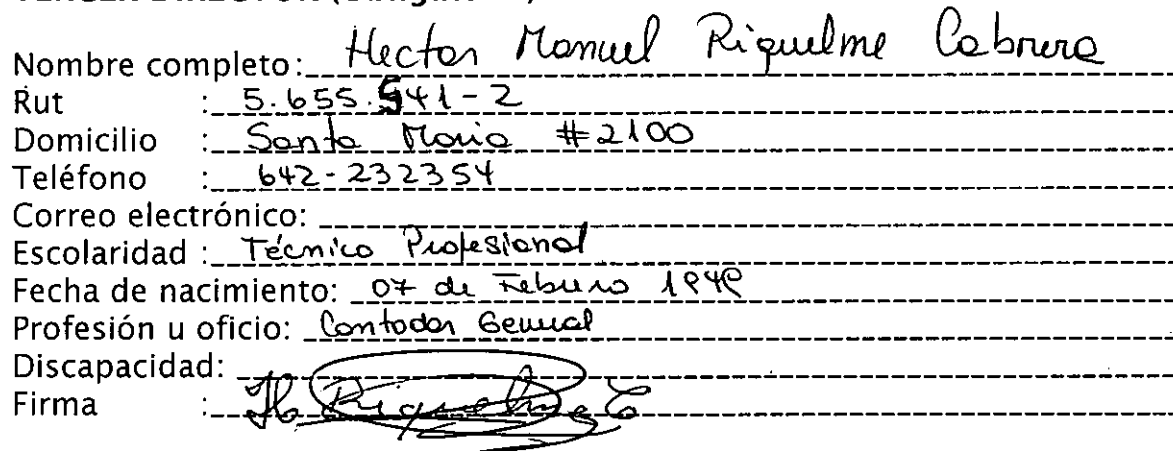 Nombre completo: Hector Manuel Riquelme Cabrera
Rut : 5.655.541-2
Domicilio : Santa Maria #2100
Teléfono : 642-232354
Correo electrónico:
Escolaridad : Técnico Profesional
Fecha de nacimiento: 07 de Febrero 1949
Profesión u oficio: Contador General
Discapacidad:
Firma : H Riquelme C